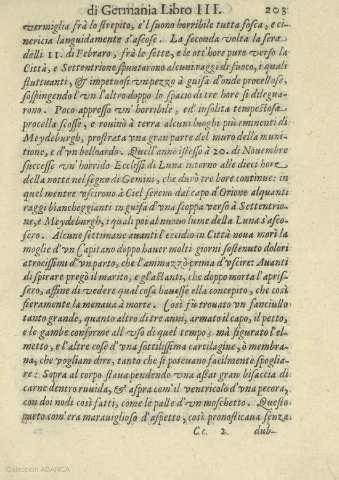 di Germania Libro III. 203
vermiglia frà lo strepito, e'l suono horribile tutta fosca, e ci-
nericia languidamente s'ascose. La seconda volta la sera
delli 11. di Febraro, frà le sette, e le ott'hore pure verso la
Città, e Settentrione spuntarono alcuni raggi di fuoco, i quali
fluttuanti, & impetuosi vn pezzo à guisa d'onde procellose,
sospingendo l'vn l'altro doppo lo spacio di tre hore si dilegua-
rono. Poco appresso vn' horribile, ed insolita tempestosa
procella scosse, e rouinò à terra alcuni luoghi più eminenti di
Meydeburgh, prostrata vna gran parte del muro della muni-
tione, e d'vn belloardo. Quell'anno istesso à 20. di Nouembre
successe vn' horrido Ecclissi di Luna intorno alle dieci hore
della notte nel segno di Gemini, che durò tre hore continue: in
quel mentre vscirono à Ciel sereno dal capo d'Orione alquanti
raggi biancheggianti in guisa d'vna scoppa verso à Settentrio-
ne, e Meydeburgh, i quali poi al nuouo lume della Luna s'asco-
sero. Alcune settimane auanti l'eccidio in Città noua morì la
moglie d'vn Capitano doppo hauer molti giorni sostenuto dolori
atrocissimi d'vn parto, che l'ammazzò prima d'vscire. Auanti
di spirare pregò il marito, e gl'astanti, che doppo morta l'apris-
sero, affine di vedere qual cosa hauesse ella concepito, che così
fieramente la menaua à morte. Così fù trouato vn fanciullo
tanto grande, quanto altro di tre anni, armato il capo, il petto,
e le gambe conforme all'vso di quel tempo; mà figurato l'el-
metto, e l'altre cose d'vna sottilissima cartilagine, ò membra-
na, che vogliam dire, tanto che si poteuano facilmente spoglia-
re: Sopra al corpo staua pendendo vna assai gran bisaccia di
carne dentro ruuida, & aspra com'il ventricolo d'vna pecora,
con doi nodi così fatti, come le palle d'vn moschetto. Questo
parto com'era marauiglioso d'aspetto, così pronosticaua senza
Cc 2 dub-
Colección ABANCA